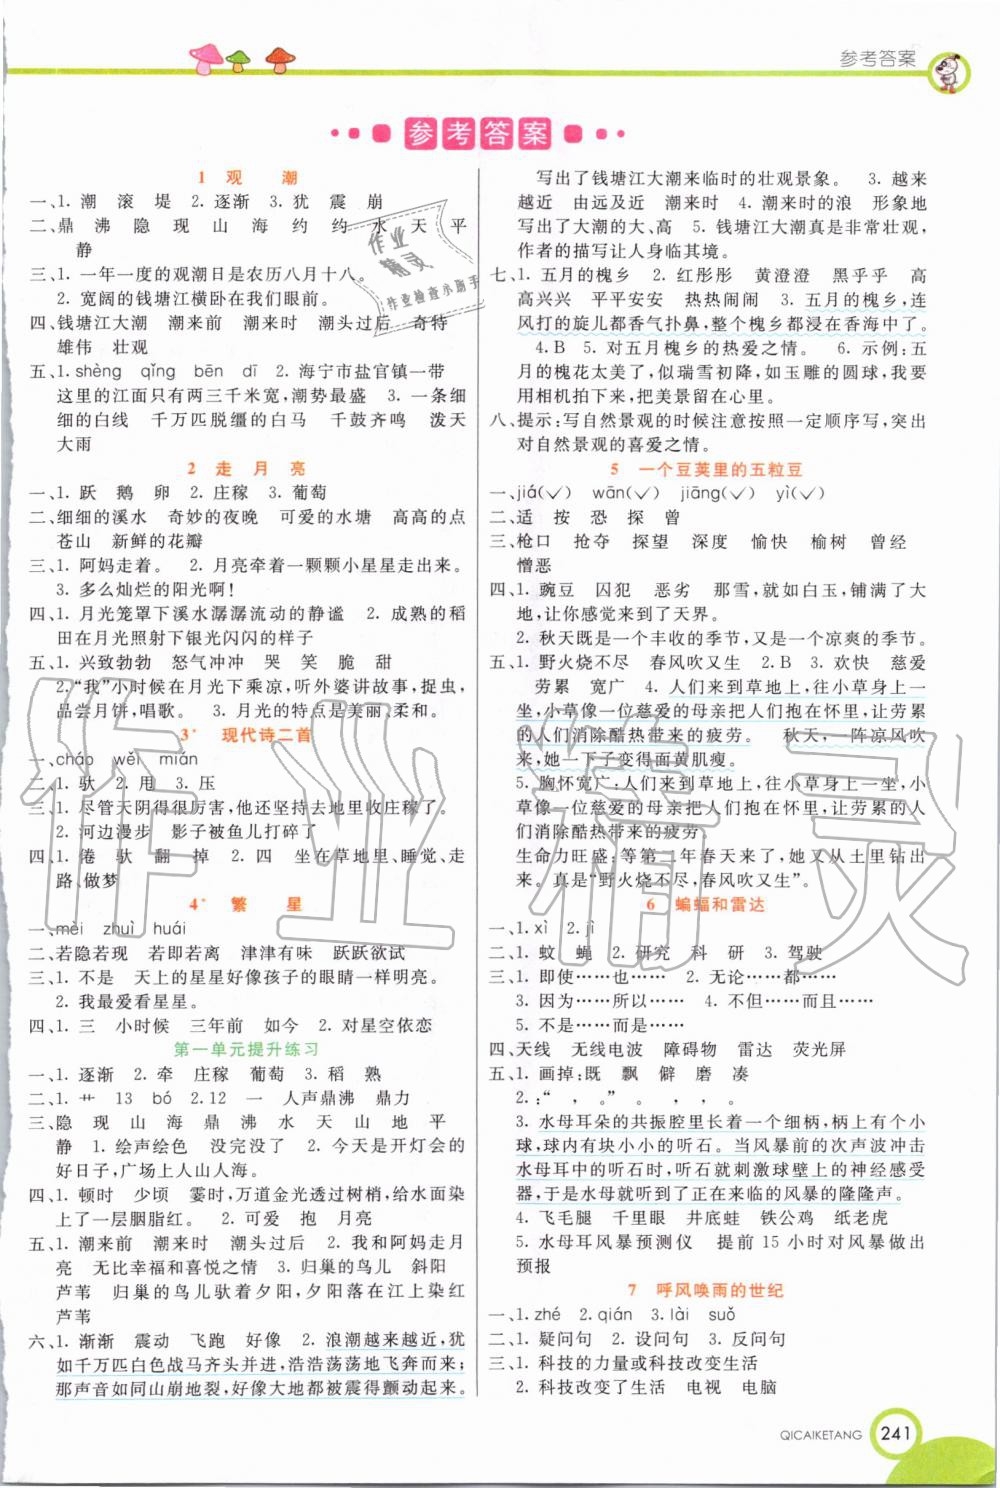 参考答案
参考答案
1 观 潮
一、1. 潮 滚 堤 2. 逐渐 3. 犹 震 崩
二、鼎 沸 隐 现 山 海 约 约 水 天 平
静
三、1. 一年一度的观潮日是农历八月十八。
2. 宽阔的钱塘江横卧在我们眼前。
四、钱塘江大潮 潮来前 潮来时 潮头过后 奇特
雄伟 壮观
五、1. shèng qǐng bēn dī 2. 海宁市盐官镇一带
这里的江面只有两三千米宽,潮势最盛 3. 一条细
细的白线 千万匹脱缰的白马 千鼓齐鸣 泼天
大雨
2 走 月 亮
一、1. 跃 鹅 卵 2. 庄稼 3. 葡萄
二、细细的溪水 奇妙的夜晚 可爱的水塘 高高的点
苍山 新鲜的花瓣
三、1. 阿妈走着。 2. 月亮牵着一颗颗小星星走出来。
3. 多么灿烂的阳光啊!
四、1. 月光笼罩下溪水潺潺流动的静谧 2. 成熟的稻
田在月光照射下银光闪闪的样子
五、1. 兴致勃勃 怒气冲冲 哭 笑 脆 甜
2.“我”小时候在月光下乘凉,听外婆讲故事,捉虫,
品尝月饼,唱歌。 3. 月光的特点是美丽、柔和。
3* 现代诗二首
一、cháo wěi miǎn
二、1. 驮 2. 甩 3. 压
三、1. 尽管天阴得很厉害,他还坚持去地里收庄稼了。
2. 河边漫步 影子被鱼儿打碎了
四、1. 倦 驮 翻 掉 2. 四 坐在草地里、睡觉、走
路、做梦
4* 繁 星
一、mèi zhuì huái
二、若隐若现 若即若离 津津有味 跃跃欲试
三、1. 不是 天上的星星好像孩子的眼睛一样明亮。
2. 我最爱看星星。
四、1. 三 小时候 三年前 如今 2. 对星空依恋
第一单元提升练习
一、1. 逐渐 2. 牵 庄稼 葡萄 3. 稻 熟
二、1. 艹 13 bó 2. 12 一 人声鼎沸 鼎力
三、隐 现 山 海 鼎 沸 水 天 山 地 平
静 1. 绘声绘色 没完没了 2. 今天是开灯会的
好日子,广场上人山人海。
四、1. 顿时 少顷 霎时,万道金光透过树梢,给水面染
上了一层胭脂红。 2. 可爱 抱 月亮
五、1. 潮来前 潮来时 潮头过后 2. 我和阿妈走月
亮 无比幸福和喜悦之情 3. 归巢的鸟儿 斜阳
芦苇 归巢的鸟儿驮着夕阳,夕阳随归巢的鸟儿掉进
芦苇
六、1. 渐渐 震动 飞跑 好像 2. 浪潮越来越近,犹
如千万匹白色战马齐头并进,浩浩荡荡地飞奔而来;
那声音如同山崩地裂,好像大地都被震得颤动起来。
写出了钱塘江大潮来临时的壮观景象。 3. 越来
越近 由远及近 潮来时 4. 潮来时的浪 形象地
写出了大潮的大、高 5. 钱塘江大潮真是非常壮观,
作者的描写让人身临其境。
七、1. 五月的槐乡 2. 红彤彤 黄澄澄 黑乎乎 高
高兴兴 平平安安 热热闹闹 3. 五月的槐乡,连
风打的旋儿都香气扑鼻,整个槐乡都浸在香海中了。
4. B 5. 对五月槐乡的热爱之情。 6. 示例:五
月的槐花太美了,似瑞雪初降,如玉雕的圆球,我要
用相机拍下来,把美景留在心里。
八、提示:写自然景观的时候注意按照一定顺序写,突出
对自然景观的喜爱之情。
5 一个豆荚里的五粒豆
一、jiá(✓) wān(✓) jiāng(✓) yì(✓)
二、适 按 恐 探 曾
三、枪口 抢夺 探望 深度 愉快 榆树 曾经
憎恶
四、1. 豌豆 囚犯 恶劣 那雪,就如白玉,铺满了大
地,让你感觉来到了天界。
2. 秋天既是一个丰收的季节,又是一个凉爽的季节。
五、1. 野火烧不尽 春风吹又生 2. B 3. 欢快 慈爱
劳累 宽广 4. 人们来到草地上,往小草身上一
坐,小草像一位慈爱的母亲把人们抱在怀里,让劳累
的人们消除酷热带来的疲劳。 秋天,一阵凉风吹
来,她一下子变得面黄肌瘦。
5. 胸怀宽广:人们来到草地上,往小草身上一坐,小
草像一位慈爱的母亲把人们抱在怀里,让劳累的人
们消除酷热带来的疲劳。
生命力旺盛:等第二年春天来了,她又从土里钻出
来。真是“野火烧不尽,春风吹又生”。
6 蝙蝠和雷达
一、1. xì 2. jì
二、1. 蚊 蝇 2. 研究 科 研 3. 驾驶
三、1. 即使……也…… 2. 无论……都……
3. 因为……所以…… 4. 不但……而且……
5. 不是……而是……
四、天线 无线电波 障碍物 雷达 荧光屏
五、1. 画掉:既 飘 僻 磨 凑
2. :“ , 。” 。 , 。
3. 水母耳朵的共振腔里长着一个细柄,柄上有个小
球,球内有块小小的听石。当风暴前的次声波冲击
水母耳中的听石时,听石就刺激球壁上的神经感受
器,于是水母就听到了正在来临的风暴的隆隆声。
4. 飞毛腿 千里眼 井底蛙 铁公鸡 纸老虎
5. 水母耳风暴预测仪 提前 15 小时对风暴做出
预报
7 呼风唤雨的世纪
一、1. zhé 2. qián 3. lài suǒ
二、1. 疑问句 2. 设问句 3. 反问句
三、1. 科技的力量或科技改变生活
2. 科技改变了生活 电视 电脑
QICAIKETANG 241
作业精灵
作业检查小助手
作业精灵